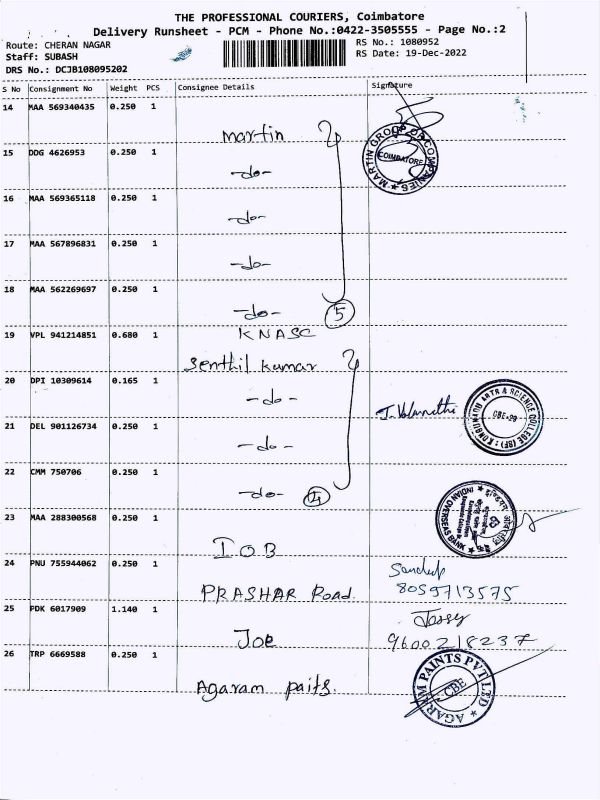 THE PROFESSIONAL COURIERS, Coimbatore
Delivery Runsheet - PCM - Phone No.:0422-3505555 - Page No.:2
Route: CHERAN NAGAR
Staff: SUBASH
DRS No.: DCJB108095202
RS No.: 1080952
RS Date: 19-Dec-2022
S No Consignment No Weight PCS Consignee Details Signature
14 MAA 569340435 0.250 1
Martin
MARTIN GROUP OF COMPANIES
COIMBATORE
15 DDG 4626953 0.250 1
-do-
16 MAA 569365118 0.250 1
-do-
17 MAA 567896831 0.250 1
-do-
18 MAA 562269697 0.250 1
-do- 5
19 VPL 941214851 0.680 1
KNASC
Senthil kumar
20 DPI 10309614 0.165 1
-do-
ARTS & SCIENCE COLLEGE
CBE-99
21 DEL 901126734 0.250 1
-do-
22 CMM 750706 0.250 1
-do- 4
INDIAN OVERSEAS BANK
23 MAA 288300568 0.250 1
IOB
24 PNU 755944062 0.250 1
PRASHAR Road.
Sandeep
8059713575
25 PDK 6017909 1.140 1
Joe
Jessy
9600218237
26 TRP 6669588 0.250 1
Agaram paits.
AGARAM PAINTS PVT LTD
CBE